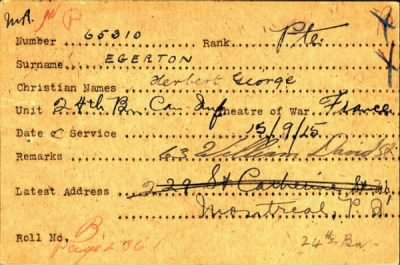 Mr. P
Number 65310 Rank Pte.
Surname EGERTON
Christian Names Herbert George
Unit 24th Bn Can Inf Theatre of War France
Date of Service 15/9/15
Remarks 63 William David St
Latest Address 229 St Catherine St
Montreal, P.Q.
Roll No. B
Page 2861
24th Bn